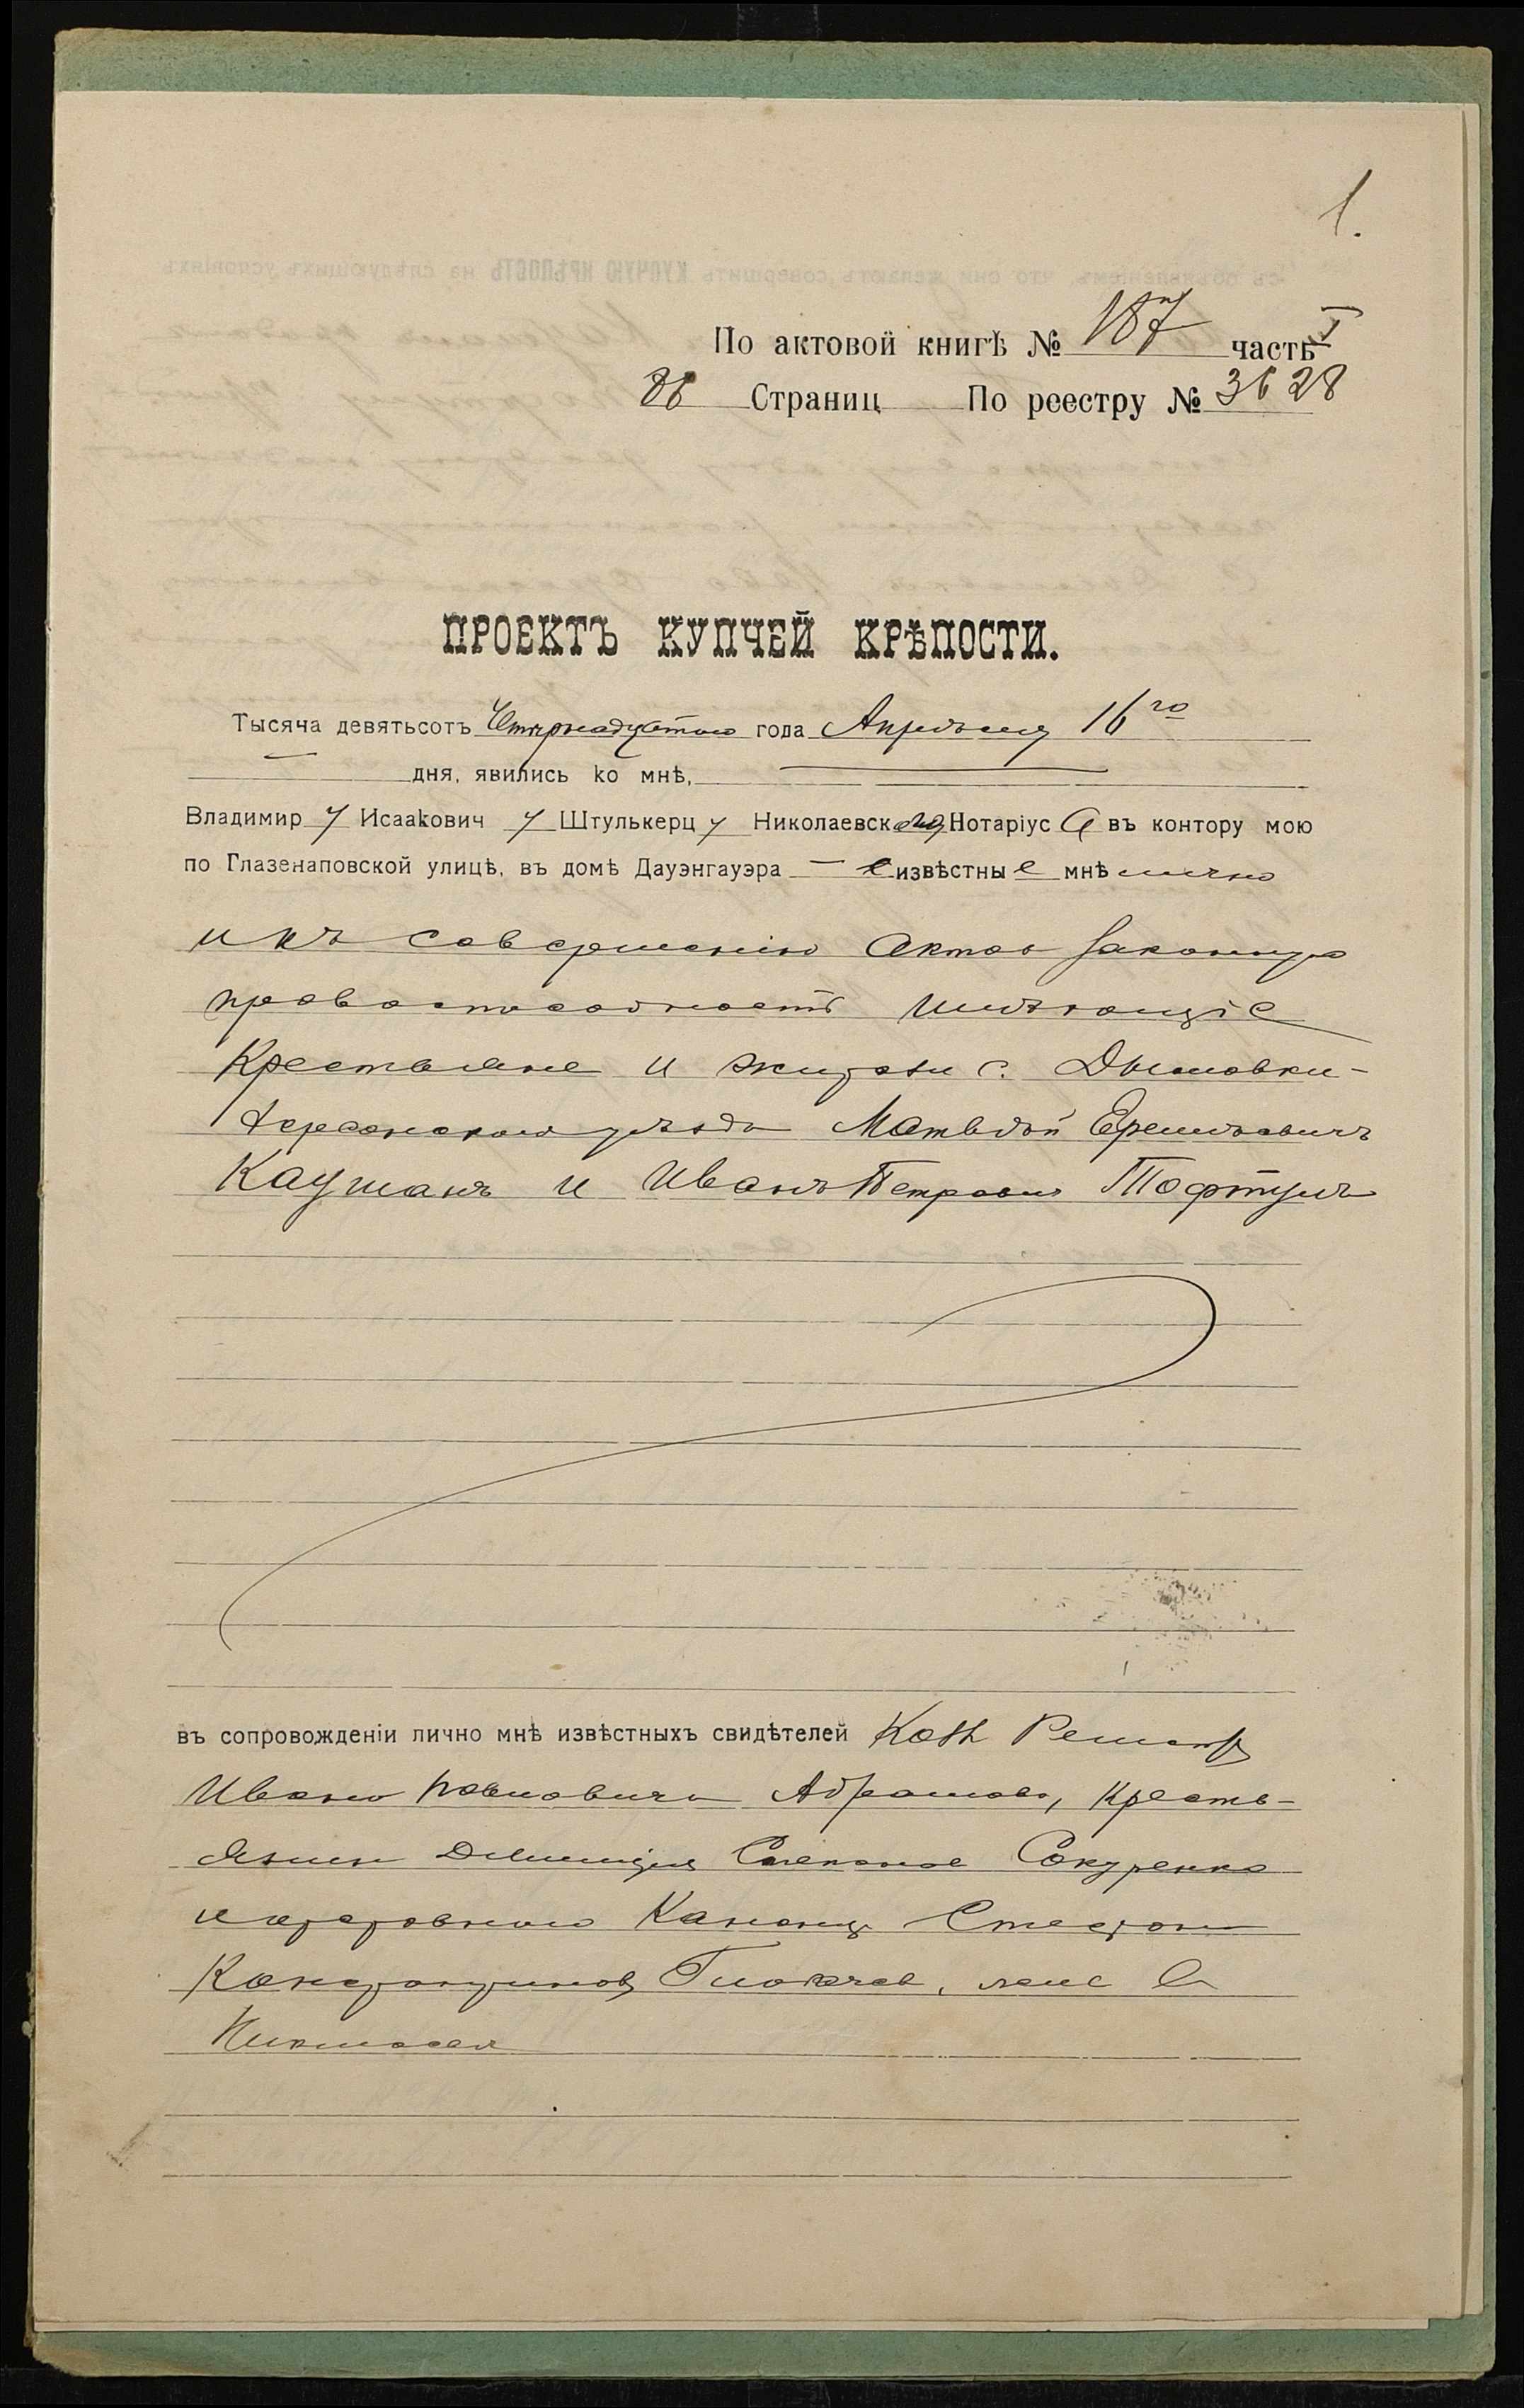 1.
По актовой книгѣ № 187 часть I
86 Страниц По реестру № 3628
ПРОЕКТЪ КУПЧЕЙ КРѢПОСТИ.
Тысяча девятьсотъ Четырнадцатаго года Апрѣля 16го
дня, явились ко мнѣ,
Владимир у Исаакович у Штулькерц у Николаевскому Нотаріус у въ контору мою
по Глазенаповской улицѣ, въ домѣ Дауэнгауэра — извѣстные мнѣ лично
и къ совершенію актов законную
правоспособность имѣющіе
Крестьяне и жители с. Дымовки
Херсонскаго уѣзда Матвѣй Еремѣевичъ
Каушанъ и Иванъ Петровичъ Тофтулъ
въ сопровожденіи лично мнѣ извѣстныхъ свидѣтелей
Ивана Павловича Абрамова, кресть-
янин Сокуренко
и
Николаев